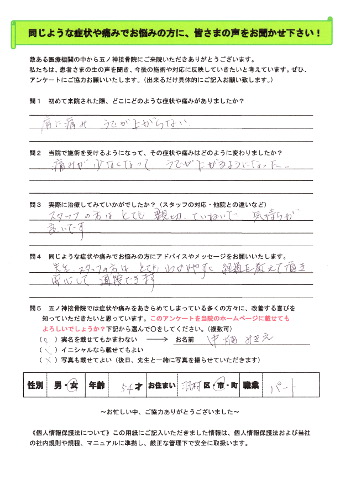 同じような症状や痛みでお悩みの方に、皆さまの声をお聞かせ下さい！
数ある医療機関の中から五ノ神接骨院にご来院いただきありがとうございます。
私たちは、患者さまの生の声を聞き、今後の施術や対応に反映していきたいと考えています。ぜひ、
アンケートにご協力お願いいたします。（出来るだけ具体的にご記入お願い致します。）
問１　初めて来院された際、どこにどのような症状や痛みがありましたか？
肩に痛み　うでが上がらない
問２　当院で施術を受けるようになって、その症状や痛みはどのように変わりましたか？
痛みが少なくなって　うでが上がるようになった
問３　実際に治療してみていかがでしたか？（スタッフの対応・他院との違いなど）
スタッフの方は とても 親切、ていねいで　気持ちが
良いです
問４　同じような症状や痛みでお悩みの方にアドバイスやメッセージをお願いします。
先生、スタッフの方は とても わかりやすく
安心して 通院できます
問５　五ノ神接骨院では症状や痛みをあきらめてしまっている多くの方々に、改善する喜びを
知っていただきたいと思っています。このアンケートを当院のホームページに載せても
よろしいでしょうか？下記から選んで○をしてください。（複数可）
（　）実名を載せてもかまわない　→　お名前
（　）イニシャルなら載せてもよい
（　）写真も載せてよい（後日、先生と一緒に写真を撮らせていただきます）
性別　男・女　年齢　才　お住まい　区・市・町　職業　パート
～お忙しい中、ご協力ありがとうございました～
《個人情報保護法について》この用紙にご記入いただきました情報は、個人情報保護法および当社
の社内規則や規程、マニュアルに準拠し、厳正な管理下で安全に取扱います。